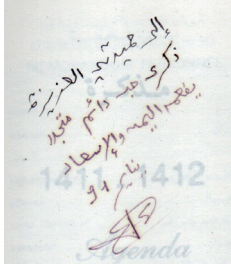 إلى حميدتي العزيزة
ذكرى حب دائم متجدد
يفعمه اليمن والإسعاد
يناير 92
مذكرة
1411 1412
Agenda